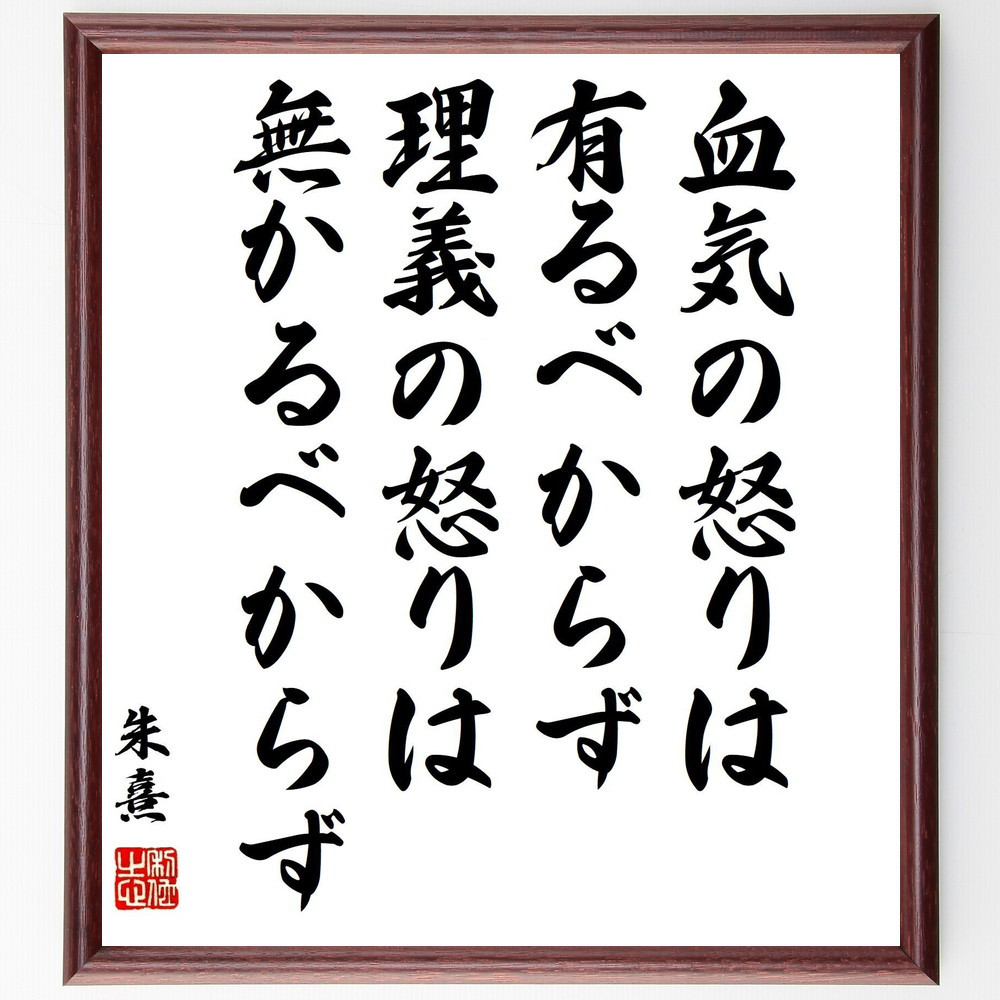 血気の怒りは
有るべからず
理義の怒りは
無かるべからず
朱熹